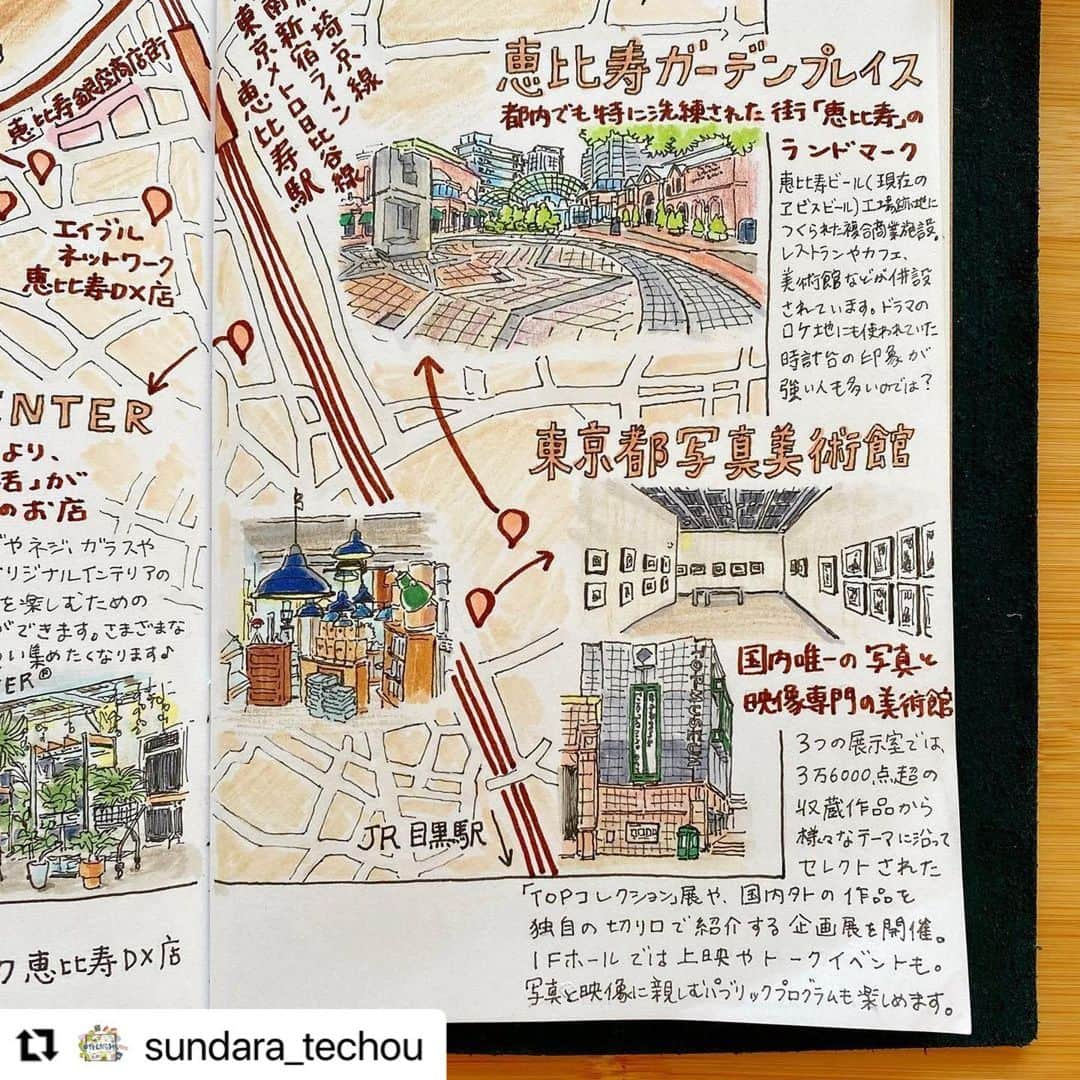 恵比寿銀座商店街
エイブル
ネットワーク
恵比寿DX店
埼京線
南新宿ライン
東京メトロ日比谷線
恵比寿駅
恵比寿ガーデンプレイス
都内でも特に洗練された街「恵比寿」の
ランドマーク
恵比寿ビール(現在の
ヱビスビール)工場跡地に
つくられた複合商業施設。
レストランやカフェ、
美術館などが併設
されています。ドラマの
ロケ地にも使われていた
時計台の印象が
強い人も多いのでは?
ENTER
より、
活」が
のお店
やネジ、ガラスや
リジナルインテリアの
を楽しむための
ができます。さまざまな
い集めたくなります♪
TER®
東京都写真美術館
国内唯一の写真と
映像専門の美術館
3つの展示室では、
3万6000点超の
収蔵作品から
様々なテーマに沿って
セレクトされた
「TOPコレクション」展や、国内外の作品を
独自の切り口で紹介する企画展を開催。
1Fホールでは上映やトークイベントも。
写真と映像に親しむパブリックプログラムも楽しめます。
JR目黒駅
ク恵比寿DX店
sundara_techou